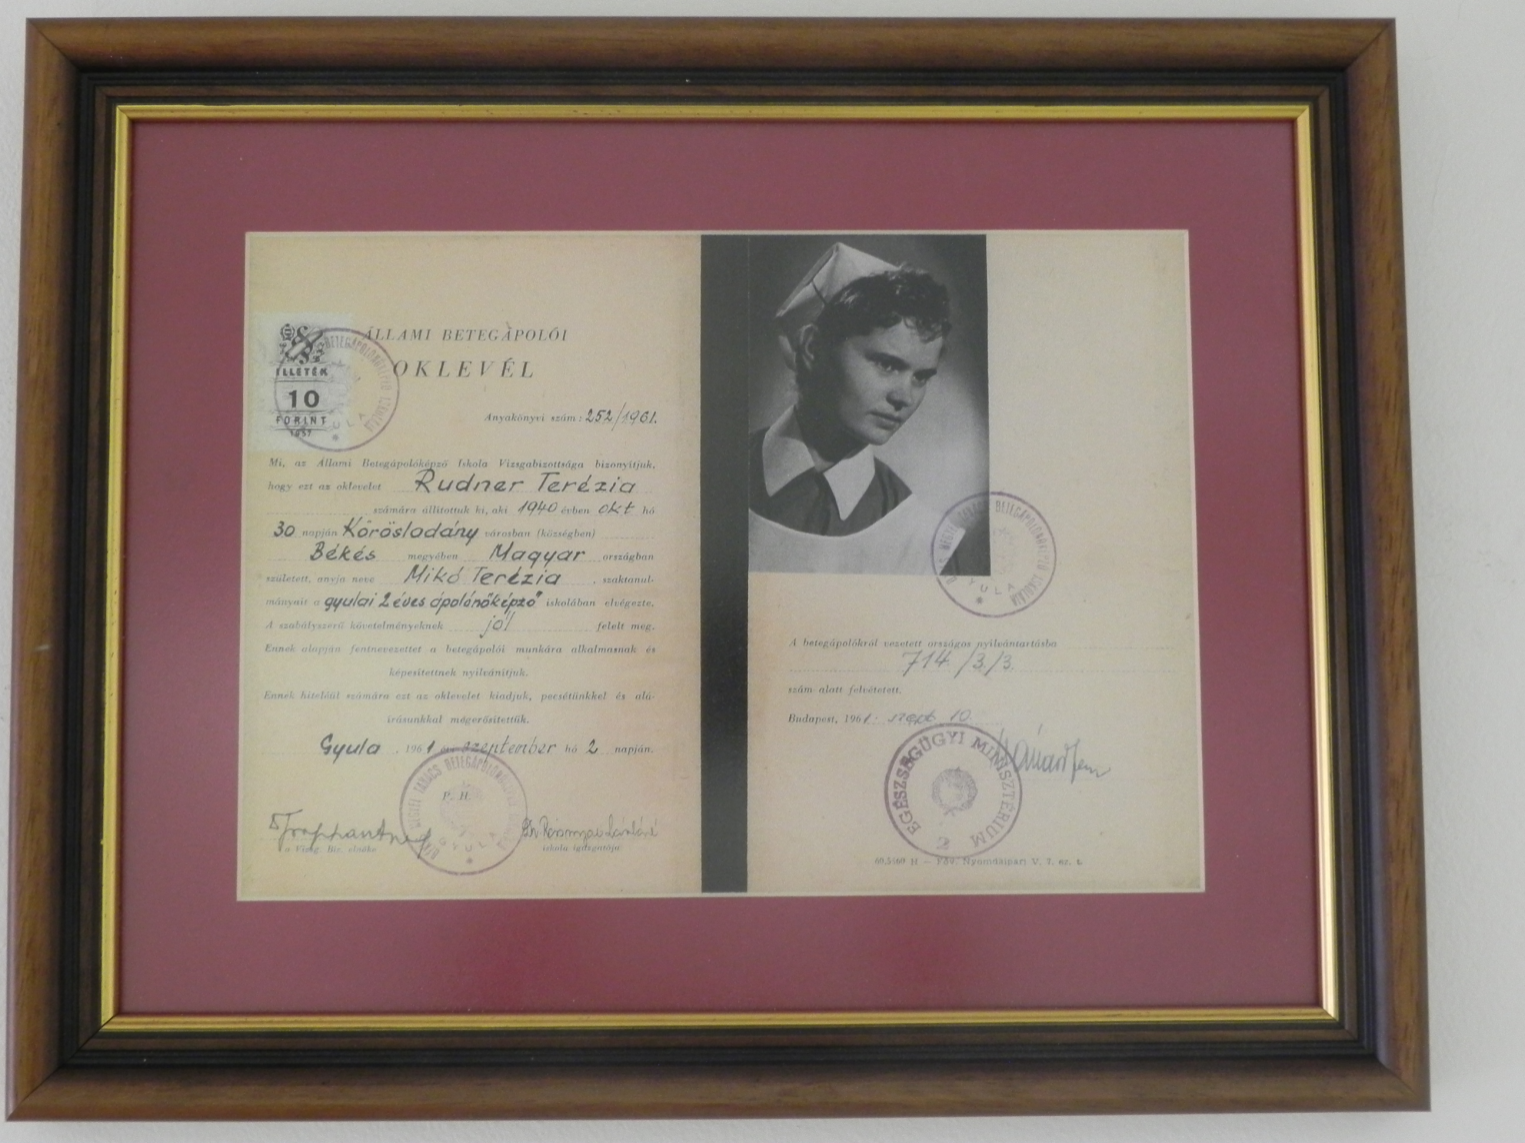 ÁLLAMI BETEGÁPOLÓI
OKLEVÉL
ILLETÉK
10
FORINT
1957
Anyakönyvi szám: 252/1961.
Mi, az Állami Betegápolóképző Iskola Vizsgabizottsága bizonyítjuk,
hogy ezt az oklevelet Rudner Terézia
számára állítottuk ki, aki 1940 évben okt hó
30 napján Köröslodány városban (községben)
Békés megyében Magyar országban
született, anyja neve Mikó Terézia, szaktanul-
mányait a gyulai 2 éves ápolónőképző iskolában elvégezte.
A szabályszerű követelményeknek jól felelt meg.
Ennek alapján fentnevezettet a betegápolói munkára alkalmasnak és
képesítettnek nyilvánítjuk.
Ennek hiteléül számára ezt az oklevelet kiadjuk, pecsétünkkel és alá-
írásunkkal megerősítettük.
Gyula, 1961 évi szeptember hó 2 napján.
P. H.
a Vizsg. Biz. elnöke
iskola igazgatója
GYULA
A betegápolókról vezetett országos nyilvántartásba
714/3/3.
szám alatt felvétetett.
Budapest, 1961. szept. 10.
EGÉSZSÉGÜGYI MINISZTÉRIUM
2
60,5460 H — Főv. Nyomdaipari V. 7. sz. t.